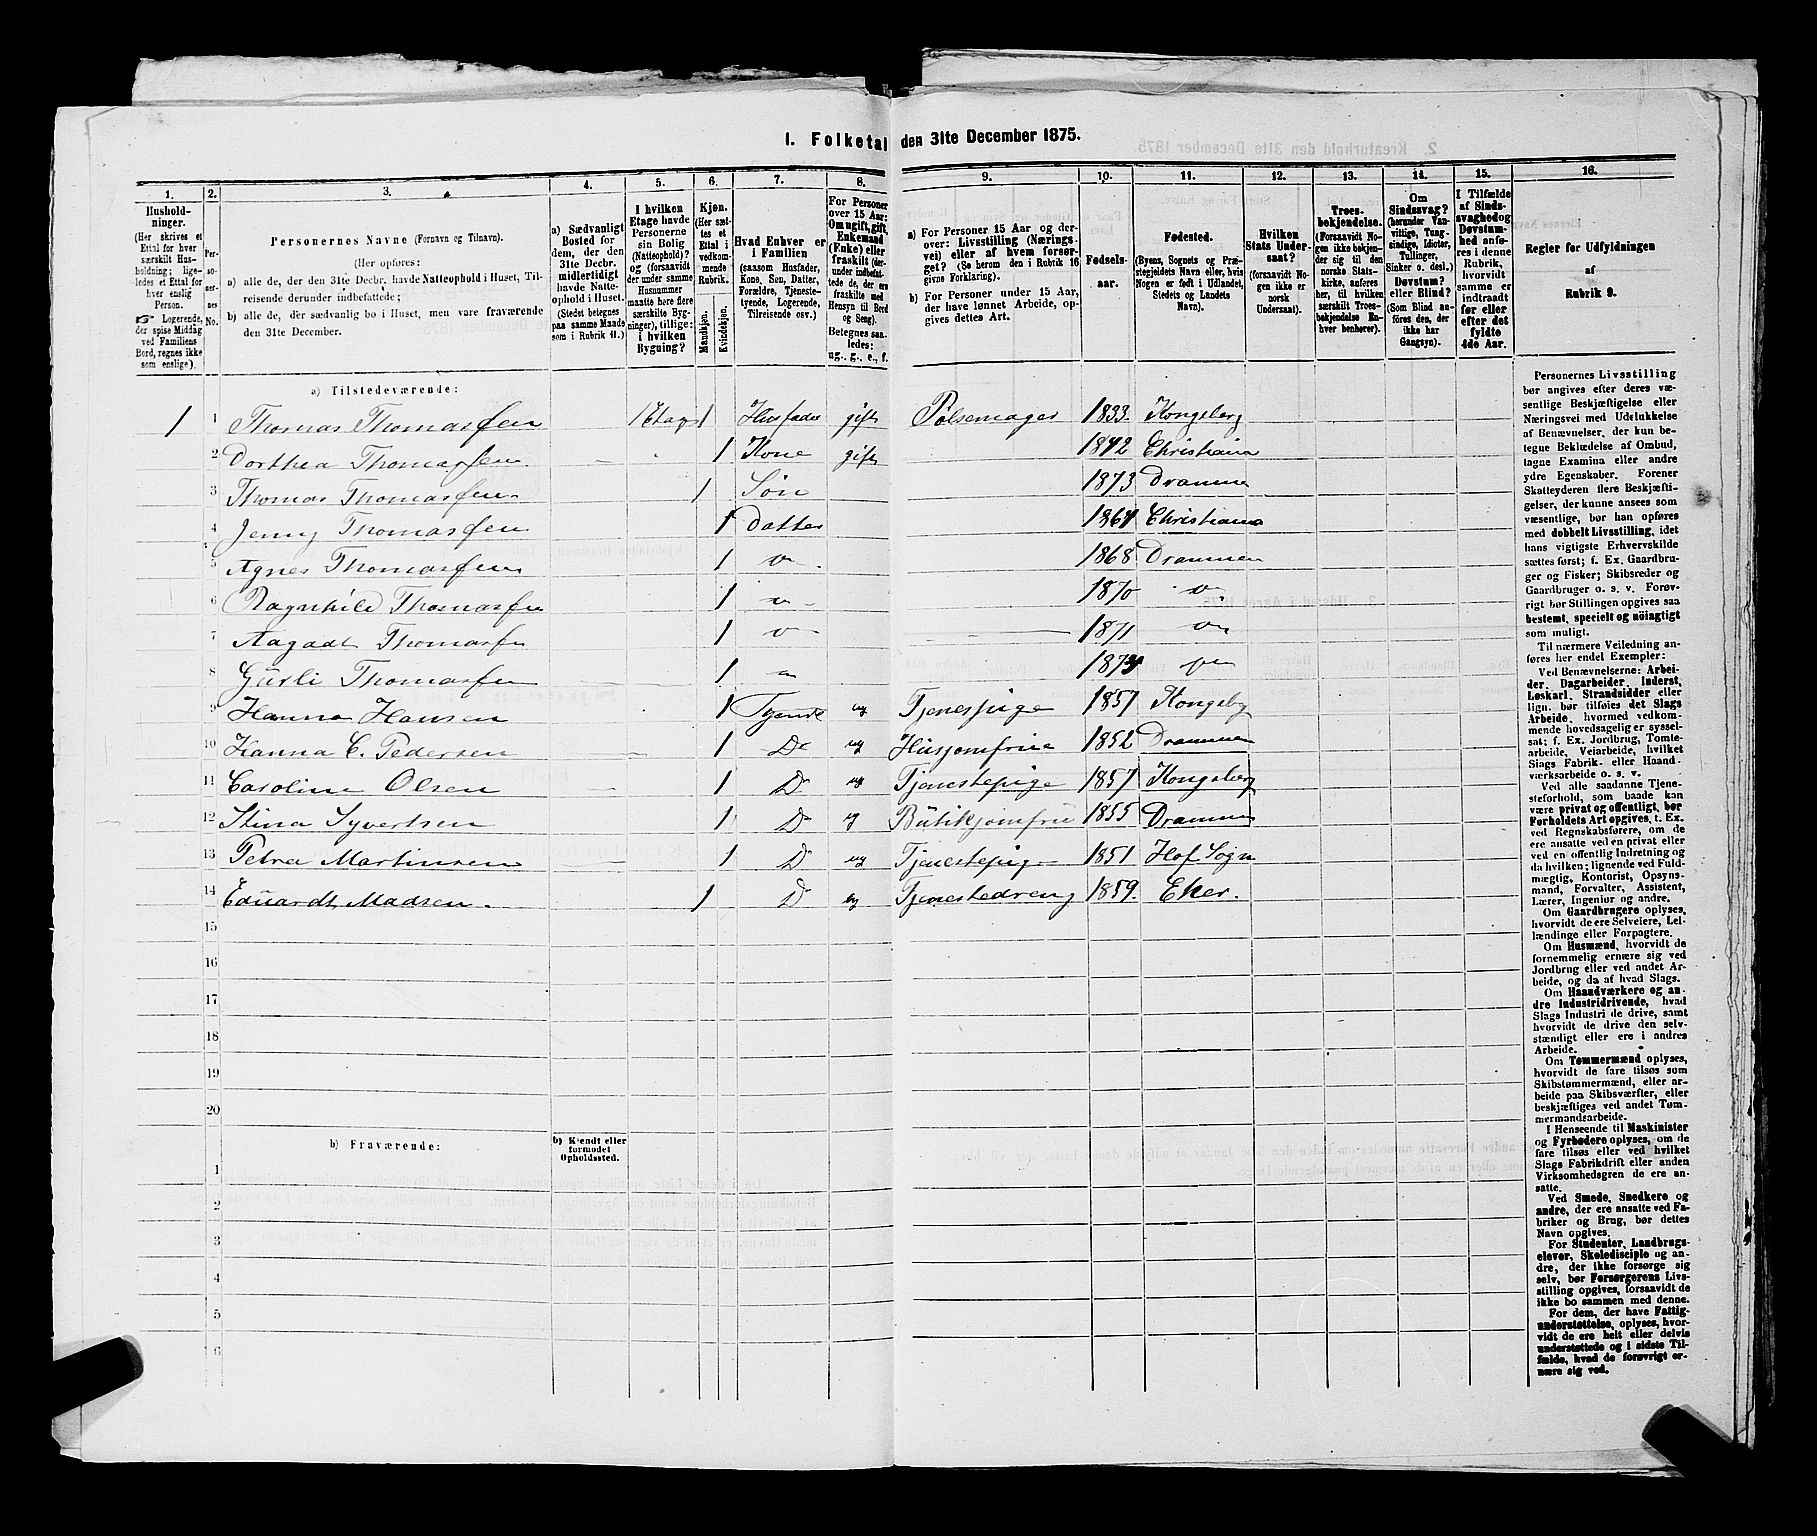 I. Folketal den 31te December 1875.
1. 2. 3. 4. 5. 6. 7. 8. 9. 10. 11. 12. 13. 14. 15. 16.
Husholdninger.
(Her skrives et
Ettal for hver
særskilt Husholdning;
ligeledes et Ettal for
hver enslig
Person.
☞ Logerende,
der spise Middag
ved Familiens
Bord, regnes ikke
som enslige).
Personernes No.
Personernes Navne (Fornavn og Tilnavn).
(Her opføres:
a) alle de, der den 31te Decbr. havde Natteophold i Huset, Tilreisende derunder indbefattede;
b) alle de, der sædvanlig bo i Huset, men vare fraværende
den 31te December.
a) Sædvanligt
Bosted for
dem, der den
31te Decbr.
midlertidigt
havde Natteophold i Huset.
(Stedet betegnes
paa samme Maade
som i Rubrik 11.)
I hvilken
Etage havde
Personerne
sin Bolig
(Natteophold)?
og (forsaavidt
der under samme
Husnummer
maatte høre flere
særskilte Bygninger), tillige:
i hvilken
Bygning?
Kjøn.
(Her sættes et
Ettal i
vedkommende
Rubrik.
Mandkjøn.
Kvindekjøn.
Hvad Enhver er
i Familien
(saasom Husfader,
Kone, Søn, Datter,
Forældre, Tjenestetyende, Logerende,
Tilreisende osv.)
For Personer
over 15 Aar:
Om ugift, gift,
Enkemand
(Enke) eller
fraskilt (derunder indbefattede de, der ere
fraskilte med
Hensyn til Bord
og Seng).
Betegnes saaledes:
ug., g., e., f.
a) For Personer 15 Aar og derover: Livsstilling (Næringsvei) eller af hvem forsørget? (Se herom den i Rubrik 16
givne Forklaring).
b) For Personer under 15 Aar,
der have lønnet Arbeide, opgives dettes Art.
Fødsels-
aar.
Fødested.
(Byens, Sognets og Præstegjeldets Navn eller, hvis
Nogen er født i Udlandet,
Stedets og Landets
Navn).
Hvilken
Stats Undersaat?
(forsaavidt Nogen ikke er
norsk
Undersaat).
Troesbekjendelse.
(Forsaavidt Nogen ikke bekjender sig til den
norske Statskirke, anføres
her, til hvilken
særskilt Troesbekjendelse Enhver henhører).
Om
Sindssvag?
(herunder Vanvittige, Tungsindige, Idioter,
Tullinger,
Sinker o. desl.)
Døvstum?
eller Blind?
(Som Blind anføres den, der
ikke har
Gangsyn).
I Tilfælde
af Sindssvaghed og
Døvstumhed anføres i denne
Rubrik,
hvorvidt
samme er
indtraadt
før eller
efter det
fyldte
4de Aar.
Regler for Udfyldningen
af
Rubrik 9.
a) Tilstedeværende:
1 1 Thomas Thomassen 1 Etage 1 Husfader gift Pølsemager 1833. Kongsberg
2 Dorthea Thomassen. 1 Kone gift 1842 Christiania
3 Thomas Thomassen 1 Søn 1873 Drammen
4 Jenny Thomassen 1 Datter 1867 Christiania
5 Agnes Thomassen 1 1868 Drammen
6 Ragnhild Thomassen 1 1870
7 Aagadt Thomassen 1 1871
8 Gürli Thomassen 1
9 Hanna Hansen 1 Tjende ug Tjenespige 1857 Kongsbg
10 Hanna C. Pedersen 1 Do ug Husjomfrue 1852 Drammen
11 Caroline Olsen 1 D ug Tjenestepige 1857 Kongsberg
12 Stina Syvertsen 1 D ug Bütikjomfru 1855 Drammen
13 Petra Martinsen 1 D ug Tjenestepig 1851 Hof Sogn
14 Eduardt Madsen. 1 D ug Tjenestedreng 1859. Eker.
15
16
17
18
19
20
b) Fraværende:
b) Kjendt eller
formodet
Opholdssted.
1
2
3
4
5
6
Personernes Livsstilling
bør angives efter deres væsentlige Beskjæftigelse eller
Næringsvei med Udelukkelse
af Benævnelser, der kun betegne Beklædelse af Ombud,
tagne Examina eller andre
ydre Egenskaber. Forener
Skatteyderen flere Beskjæftigelser, der kunne ansees som
væsentlige, bør han opføres
med dobbelt Livsstilling, idet
hans vigtigste Erhvervskilde
sættes først; f. Ex. Gaardbruger og Fisker; Skibsreder og
Gaardbruger o. s. v. Forøvrigt bør Stillingen opgives saa
bestemt, specielt og nöiagtigt
som muligt.
Til nærmere Veiledning anføres her endel Exempler:
Ved Benævnelserne: Arbeider, Dagarbeider, Inderst,
Løskarl, Strandsidder eller
lign. bør tilføies det Slags
Arbeide, hvormed vedkommende hovedsagelig er sysselsat; f. Ex. Jordbrug, Tomtearbeide, Veiarbeide, hvilket
Slags Fabrik- eller Haandværksarbeide o. s. v.
Ved alle saadanne Tjenesteforhold, som baade kan
være privat og offentligt, bør
Forholdets Art opgives, t. Ex.
ved Regnskabsførere, om de
ere ansatte ved en privat eller
ved en offentlig Indretning og
da hvilken; lignende ved Fuldmægtig, Kontorist, Opsynsmand, Forvalter, Assistent,
Lærer, Ingeniør og andre.
Om Gaardbrugere oplyses,
hvorvidt de ere Selveiere, Leilændinge eller Forpagtere.
Om Husmænd, hvorvidt de
fornemmelig ernære sig ved
Jordbrug eller ved andet Arbeide, og da af hvad Slags.
Om Haandværkere og andre Industridrivende, hvad
Slags Industri de drive, samt
hvorvidt de drive den selvstændigt eller ere i andres
Arbeide.
Om Tømmermænd oplyses,
hvorvidt de fare tilsøs som
Skibstømmermænd, eller arbeide paa Skibsværfter, eller
beskjæftiges ved andet Tømmermandsarbeide.
I Henseende til Maskinister
og Fyrbødere oplyses, om de
fare tilsøs eller ved hvilket
Slags Fabrikdrift eller anden
Virksomhedsgren de ere ansatte.
Ved Smede, Snedkere og
andre, der ere ansatte ved Fabriker og Brug, bør dettes
Navn opgives.
For Studenter, Landbrugselever, Skoledisciple og andre, der ikke forsørge sig
selv, bør Forsørgerens Livsstilling opgives, forsaavidt de
ikke bo sammen med denne.
For dem, der have Fattigunderstøttelse, oplyses, hvorvidt de ere helt eller delvis
understøttede og i sidste Tilfælde, hvad de forøvrigt ernære sig ved.